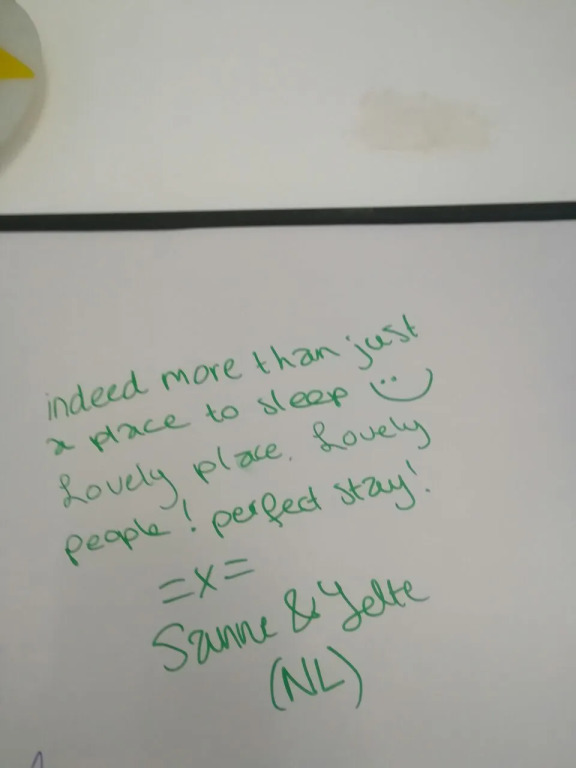 indeed more than just
a place to sleep :)
Lovely place. Lovely
people! perfect stay!
=X=
Sanne & Jelte
(NL)